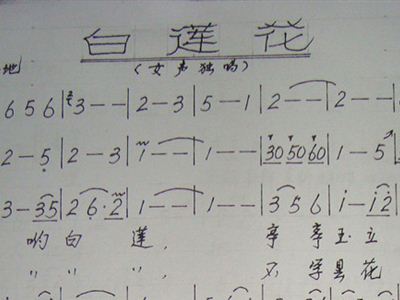 白莲花
地 （女声独唱）
6 5 6 | 3 — — | 2 — 3 | 5 — 1 | 2 — — | 2 — — |
2 — 5 | 2 — 3 | i — — | 1 — — | 30 50 60 | 1 — 5 |
3 — 35 | 2 6 · 2 | 1 — — | 1 — — | 3 5 6 | i — i2
哟 白 莲， 亭 亭玉立
〃 〃 〃， 不 学昙花